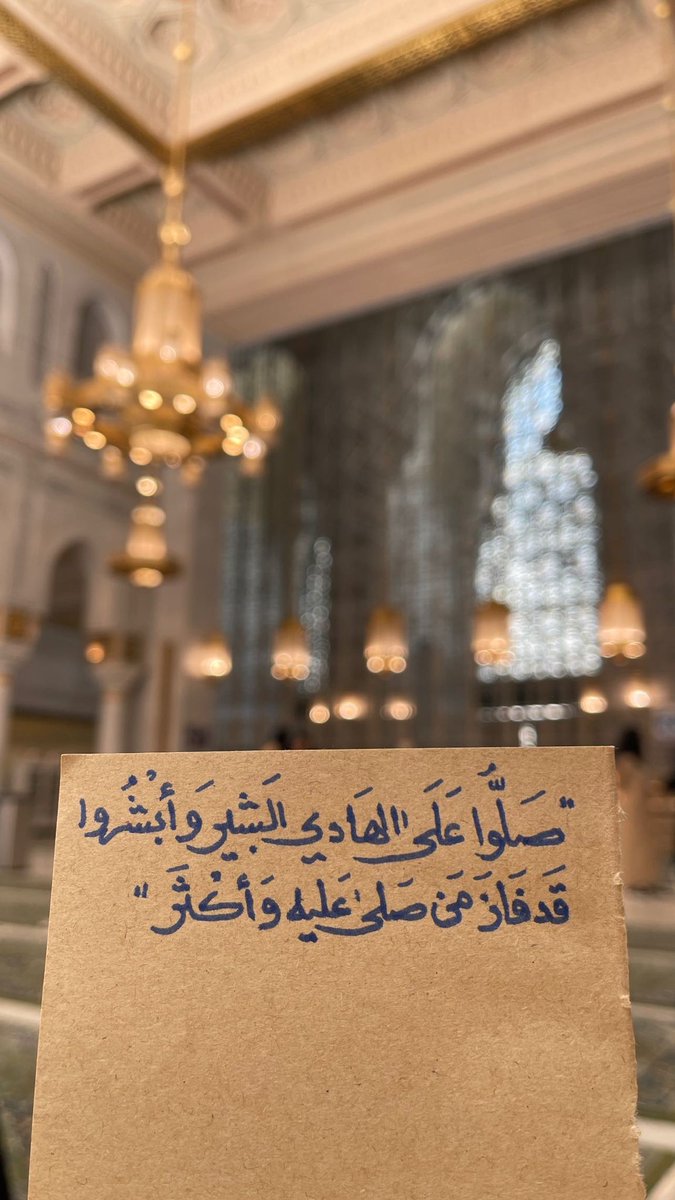 "صَلُّوا عَلَى الهَادِي البَشِيرِ وَأَبْشِرُوا
قَد فَازَ مَن صَلى عَليهِ وَأَكْثَرَ"